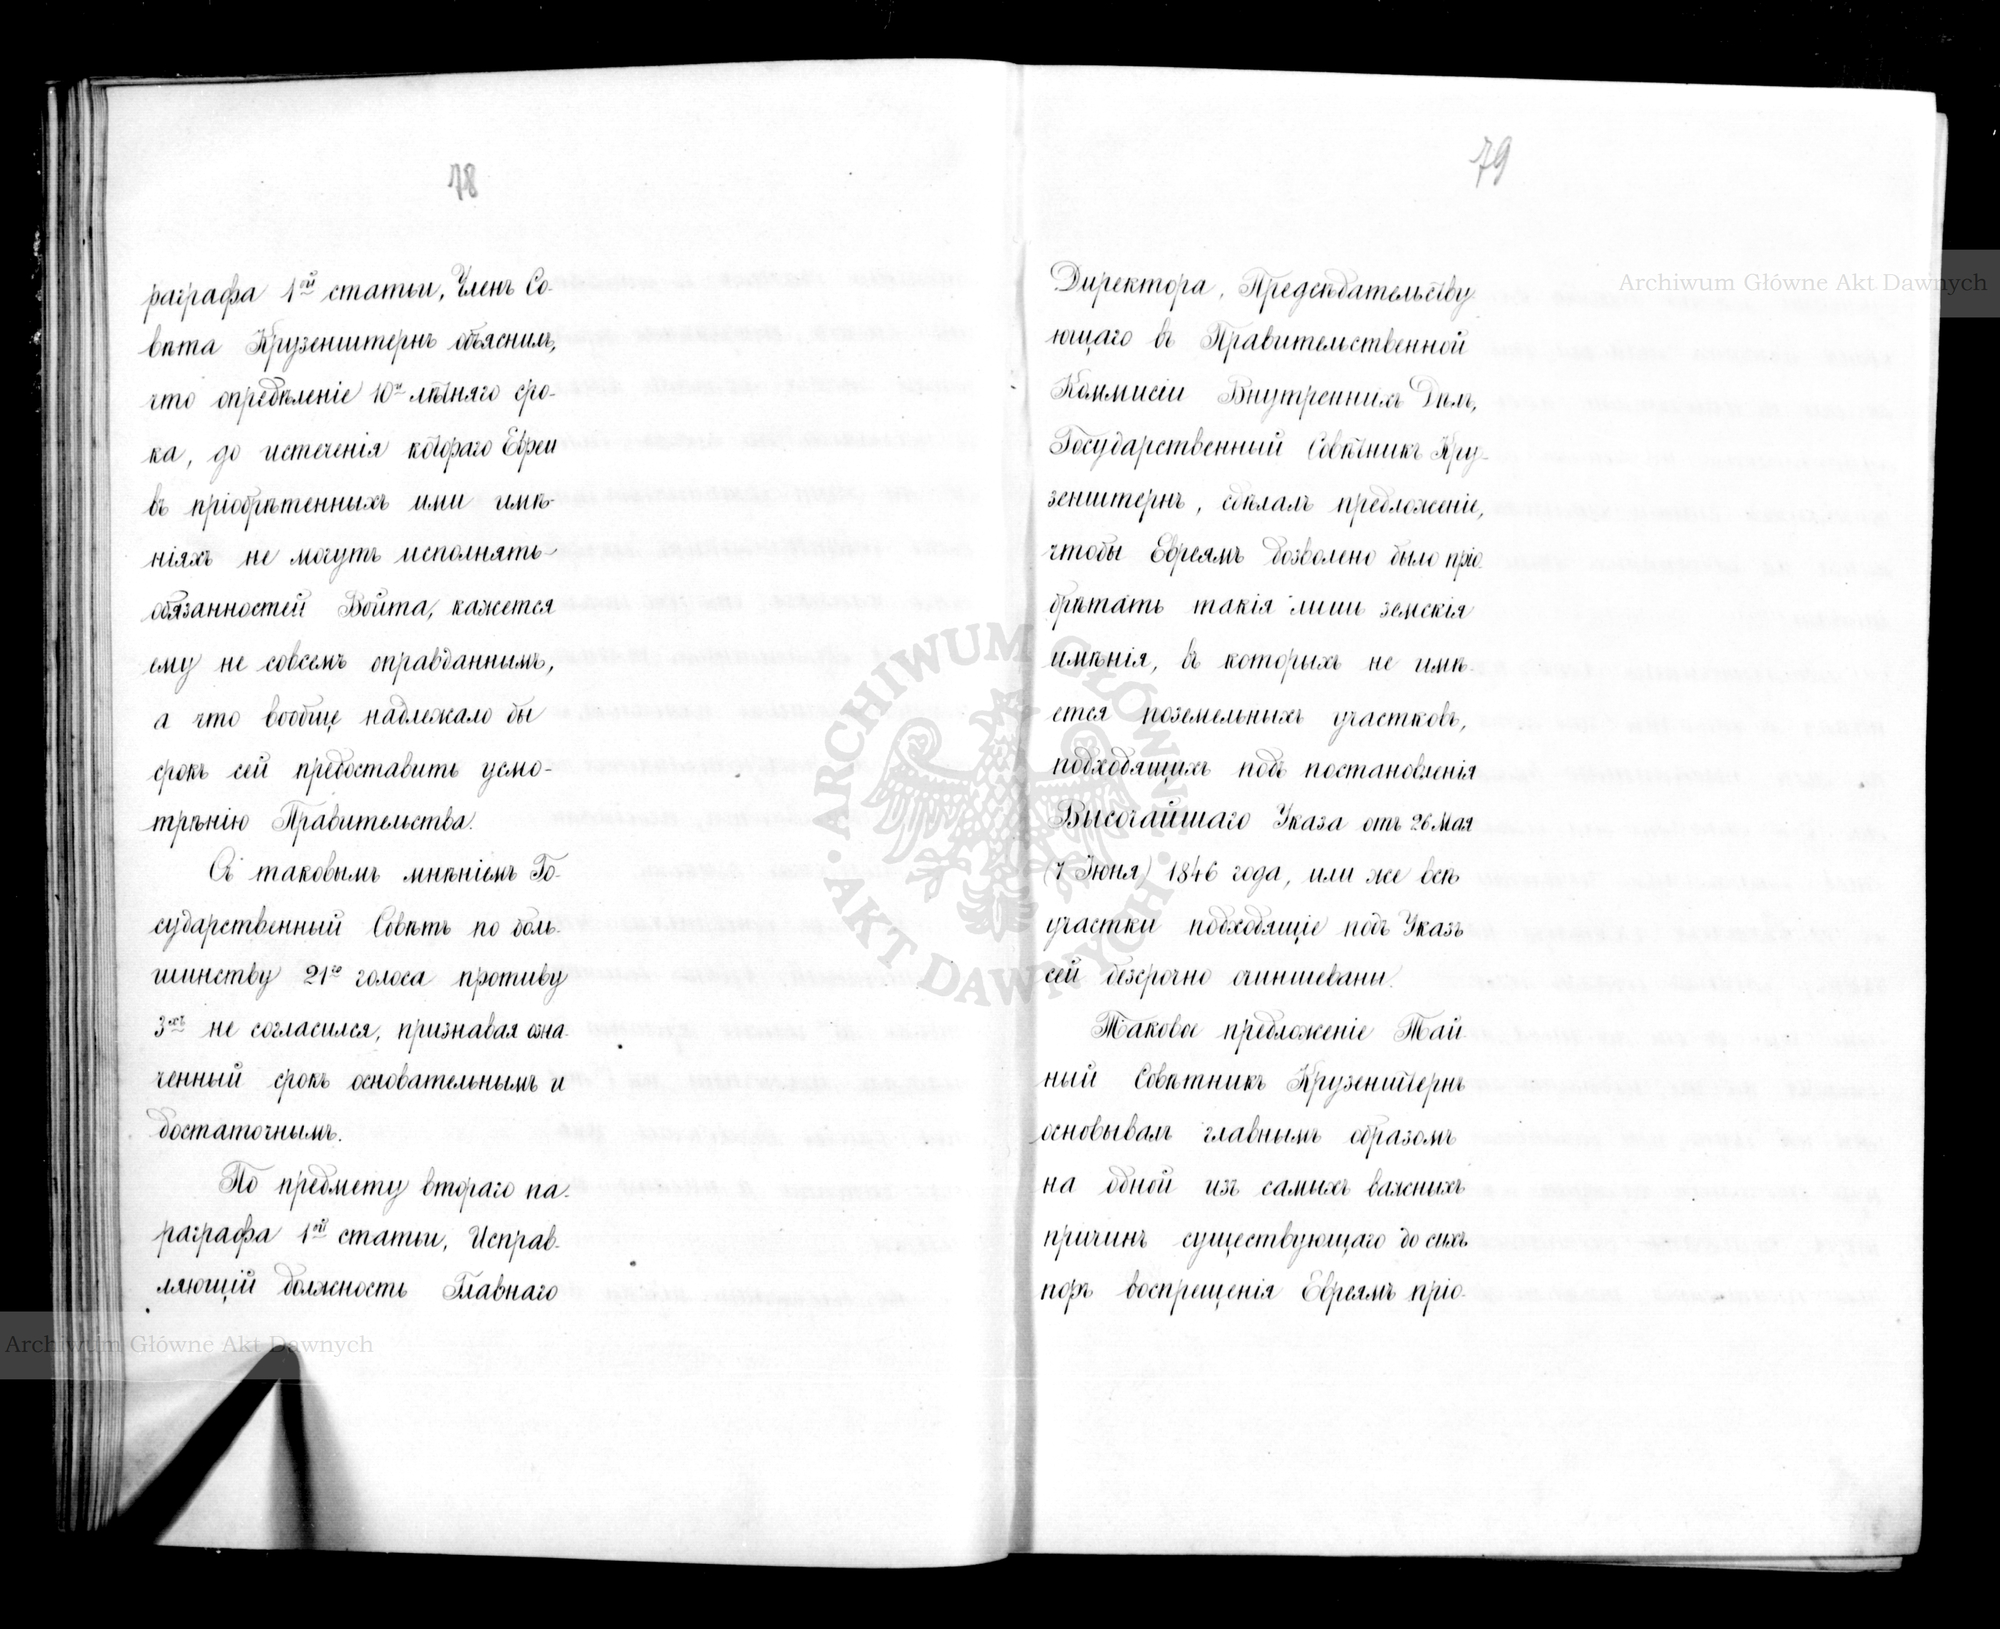 78
раграфа 1ой статьи, Членъ Со-
вѣта Крузенштернъ объяснилъ,
что опредѣленіе 10и лѣтняго сро-
ка, до истеченія котораго Евреи
въ пріобрѣтенныхъ ими имѣ-
ніяхъ не могутъ исполнять
обязанностей Войта, кажется
ему не совсемъ оправданнымъ,
а что вообще надлежало бы
срокъ сей предоставить усмо-
трѣнію Правительства.
Съ таковымъ мнѣніемъ Го-
сударственный Совѣтъ по боль-
шинству 21го голоса противу
3хъ не согласился, признавая озна-
ченный срокъ основательнымъ и
достаточнымъ.
По предмету втораго па-
раграфа 1ой статьи, Исправ-
ляющій должность Главнаго
79
Директора, Предсѣдательству-
ющаго въ Правительственной
Коммисіи Внутреннихъ Дѣлъ,
Государственный Совѣтникъ Кру-
зенштернъ, сдѣлалъ предложеніе,
чтобы Евреямъ дозволено было пріо-
брѣтать такія лишь земскія
имѣнія, въ которыхъ не имѣ-
ется поземельныхъ участковъ,
подходящихъ подъ постановленія
Высочайшаго Указа отъ 26 Мая
(7 Іюня) 1846 года, или же всѣ
участки подходящіе подъ Указъ
сей безсрочно очиншеваны.
Таковое предложеніе Тай-
ный Совѣтникъ Крузенштернъ
основывалъ главнымъ образомъ
на одной изъ самыхъ важныхъ
причинъ существующаго до сихъ
поръ воспрещенія Евреямъ пріо-
Archiwum Główne Akt Dawnych
Archiwum Główne Akt Dawnych
ARCHIWUM GŁÓWNE
AKT DAWNYCH